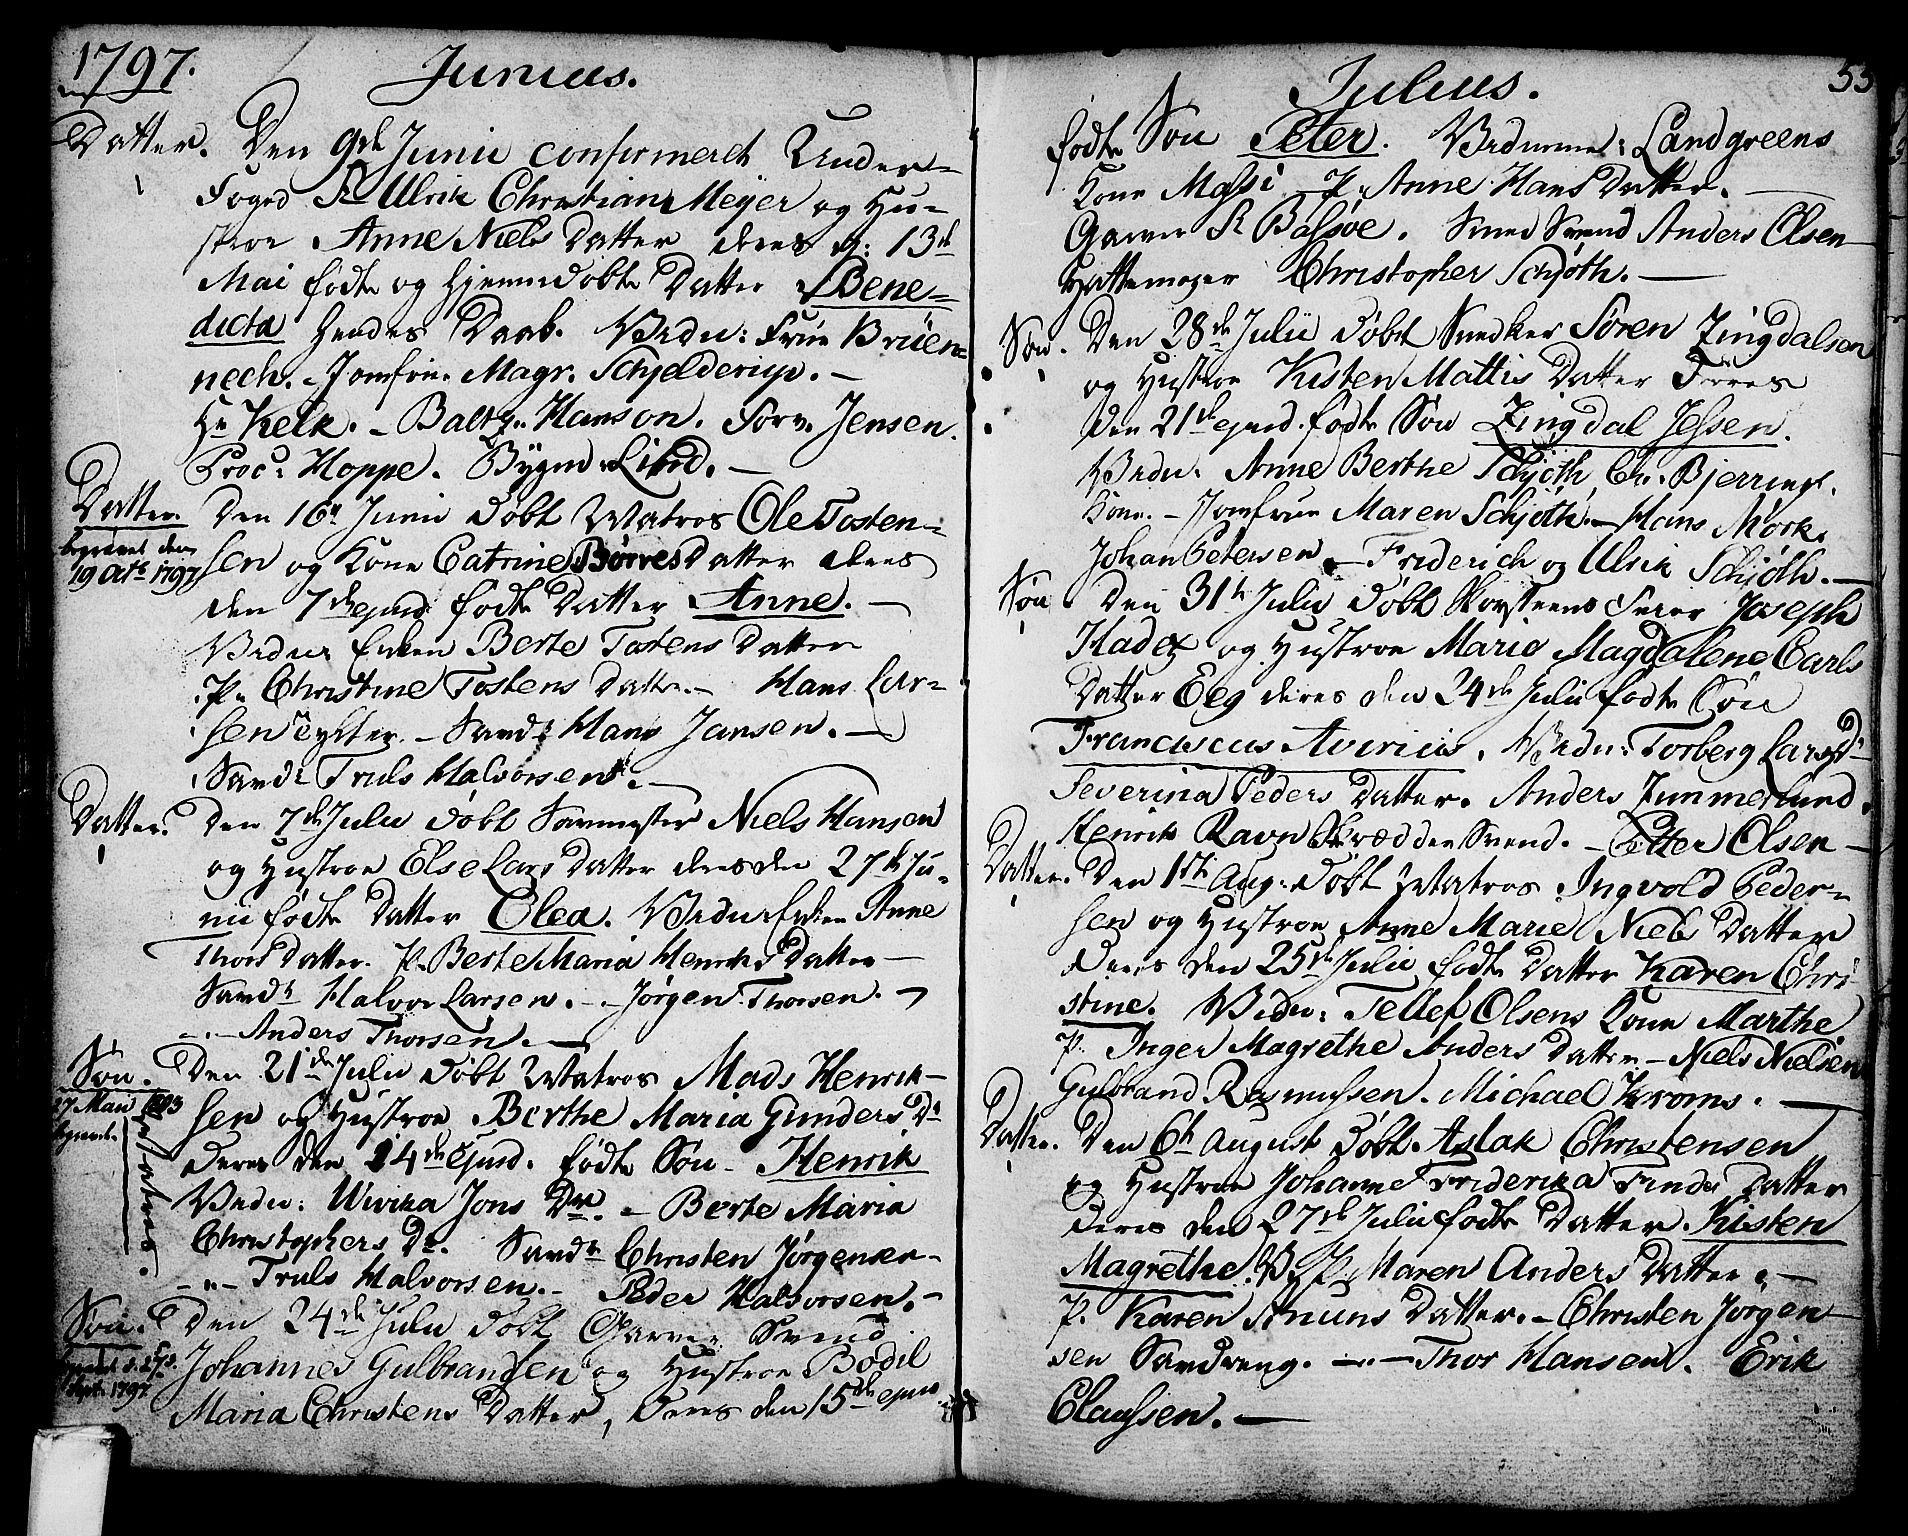 1797. Junius.
Datter. Den 9de Junii confirmeret Under-
Foged Sr Ulrik Christian Meyer og Hu-
stroe Anne Niels Datter deres d: 13de
Mai fødte og hjemmedøbte Datter Bene-
dicta hendes Daab. Vidn: Frue Brüen-
nech. - Jomfru. Magr. Schjelderup. -
Hr Kelk. - Baltz. Hanson. Forv. Jensen.
Proc: Hoppe. Bygm: Lind. -
Datter. Den 16de Junii døbt Matros Ole Tosten-
begravet den
19 Octb 1797
sen og Kone Catrine Børres Datter deres
den 7de ejusd. fødte Datter Anne. -
Vidn: Enken Berte Tostens Datter
P. Christine Tostens Datter. - Hans Lar-
sen - Samd: Hans Jansen. -
Samd: Truls Halvorsen. -
Datter. Den 7de Julii døbt Niels Hansen
og Hustroe Else Lars Datter deres den 27de Ju-
nii fødte Datter Olea. Vidn: Enken Anne
Thors Datter. P. Berte Maria Henriks Datter -
Samd: Halvor Larsen. - Jørgen Thorsen. -
- Anders Thorsen. -
Søn. Den 21de Julii døbt Matros Mads Henrik-
begravet.
sen og Hustroe Berthe Maria Gunders Dr
deres den 14de ejusd. fødte Søn - Henrik
Vidn: Wivika Jons Dtr. - Berte Maria
Christophers Dr. Samd: Christen Jørgensen -
- " - Truls Halvorsen. - Peder Halvorsen. -
Søn. Den 24de Julii døbt Garver Svend
Sept. 1797
Johannes Gulbrandsen og Hustroe Bodil
Maria Christens Datter, deres den 15de ejusd
Julius. 55
fødte Søn Peter. Vidnerne: Landgreens
Kone Massi - P. Anne Hans Datter. -
Garver Sr Basøe. Smed Svend Anders Olsen
Hattemager Christopher Schjøth. -
Søn. Den 28de Julii døbt Snedker Søren Zingdalsen
og Hustroe Kisten Mattis Datter deres
den 21de ejusd. fødte Søn Zingdal Jessen.
Vidn: Anne Berthe Schjøth Chr. Bjerrings
Kone. - Jomfrue Maren Schjøth. - Hans Mørk.
Johan Petersen. - Friderich og Ulrik Schjøth. -
Søn. Den 31te Julii døbt Skorsteens Feier Joseph
Kadetz og Hustroe Marie Magdalene Carls
Datter Eeg deres den 24de Julii fødte Søn
Franciscus Avirius. Vidn: Torberg Lars Dr
Severina Peders Datter. Anders Zimmerlund.
Henrik Ravn Skrædder Svend. - Petter Olsen -
Datter. Den 1ste Aug: døbt Matros Ingvold Peder-
sen og Hustroe Anne Marie Niels Datter
deres den 25de Julii fødte Datter Karen Chri
stine. Vidn: Tellef Olsens Kone Marthe
P. Inger Magrethe Anders Datter - Niels Nielsen
Gulbrand Rasmussen. Michael Kroms. -
Datter. Den 6te August døbt Aslak Christensen
og Hustroe Johanne Friderika Finds Datter
deres den 27de Julii fødte Datter Kisten
Magrethe. V. P. Maren Anders Datter. -
P. Karen Knuns Datter. - Christen Jørgen
sen Samdreng. - - Thor Hansen. Erik
Claussen. -